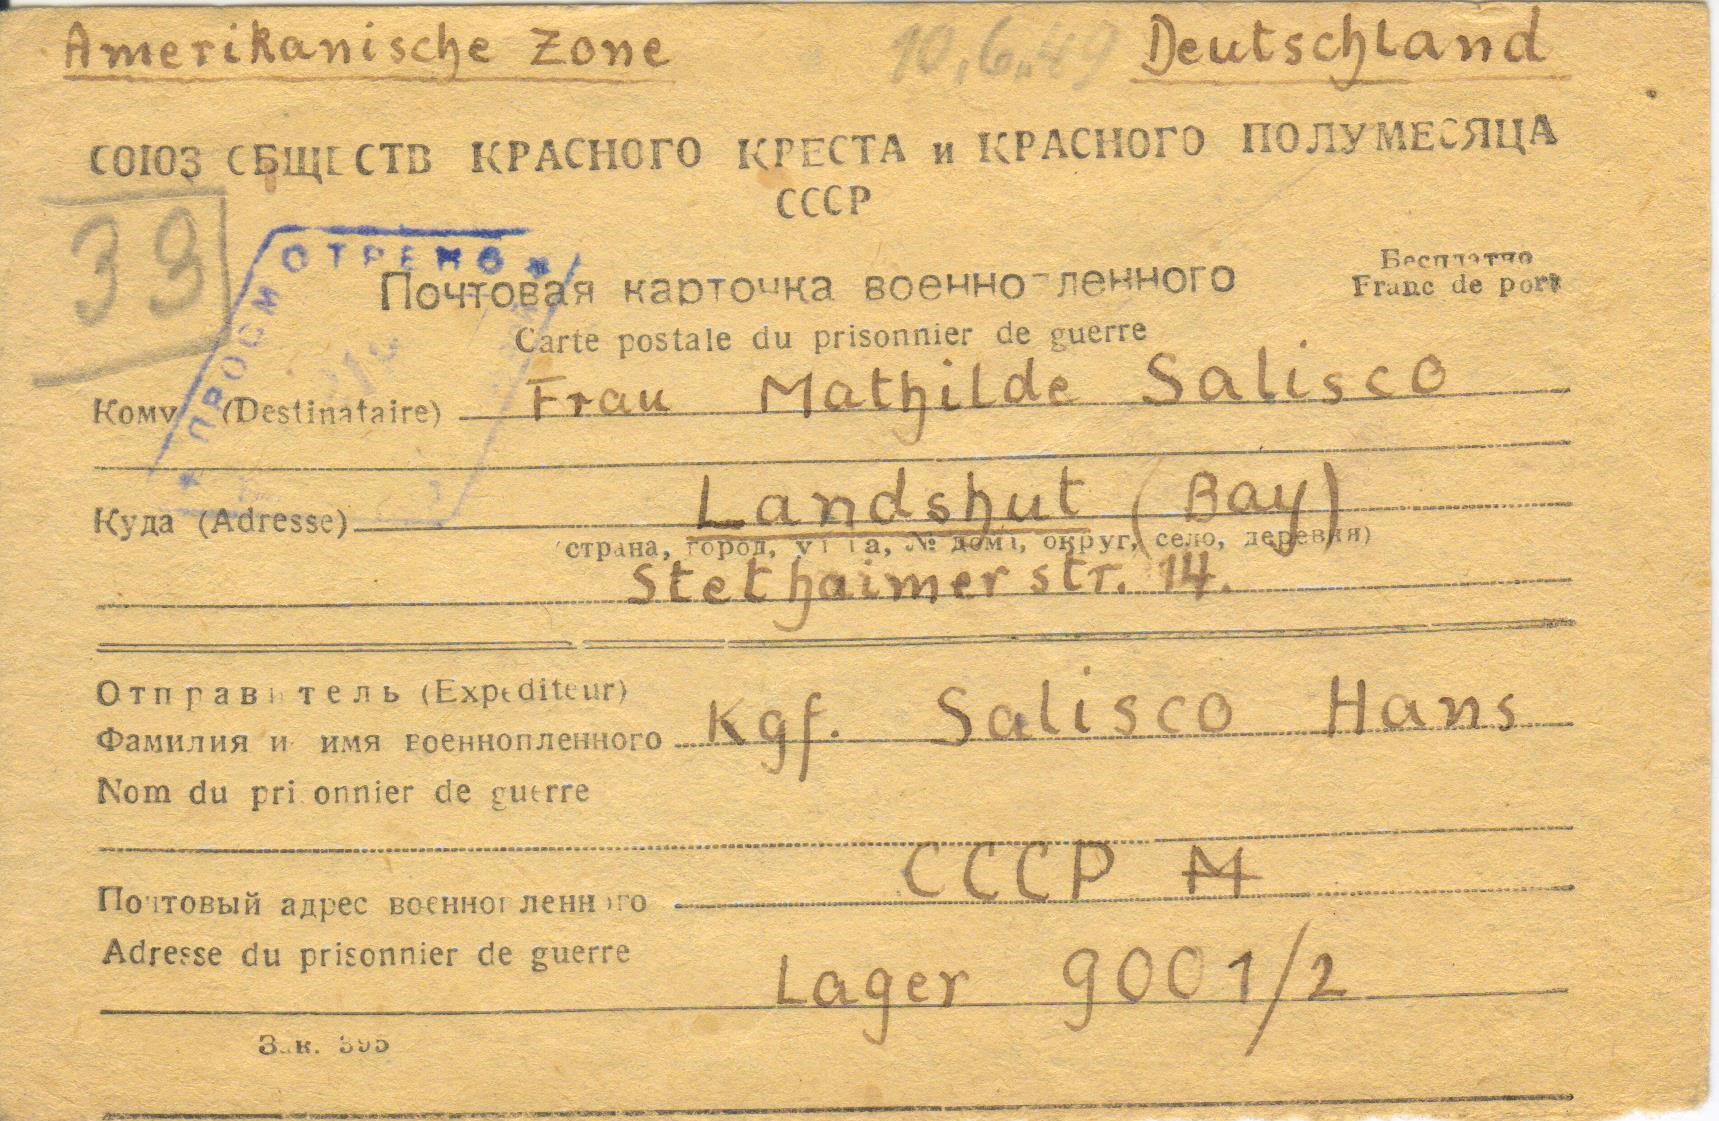 Amerikanische Zone 10.6.49 Deutschland
СОЮЗ ОБЩЕСТВ КРАСНОГО КРЕСТА и КРАСНОГО ПОЛУМЕСЯЦА
СССР
39
ПРОСМОТРЕНО
Почтовая карточка военнопленного
Бесплатно
Franc de port
Carte postale du prisonnier de guerre
Кому (Destinataire) Frau Mathilde Salisco
Куда (Adresse) Landshut (Bay)
(страна, город, улица, № дома, округ, село, деревня)
Stethaimerstr. 14.
Отправитель (Expéditeur)
Фамилия и имя военнопленного Kgf. Salisco Hans
Nom du prisonnier de guerre
Почтовый адрес военнопленного СССР М
Adresse du prisonnier de guerre
Lager 9001/2
Зак. 395